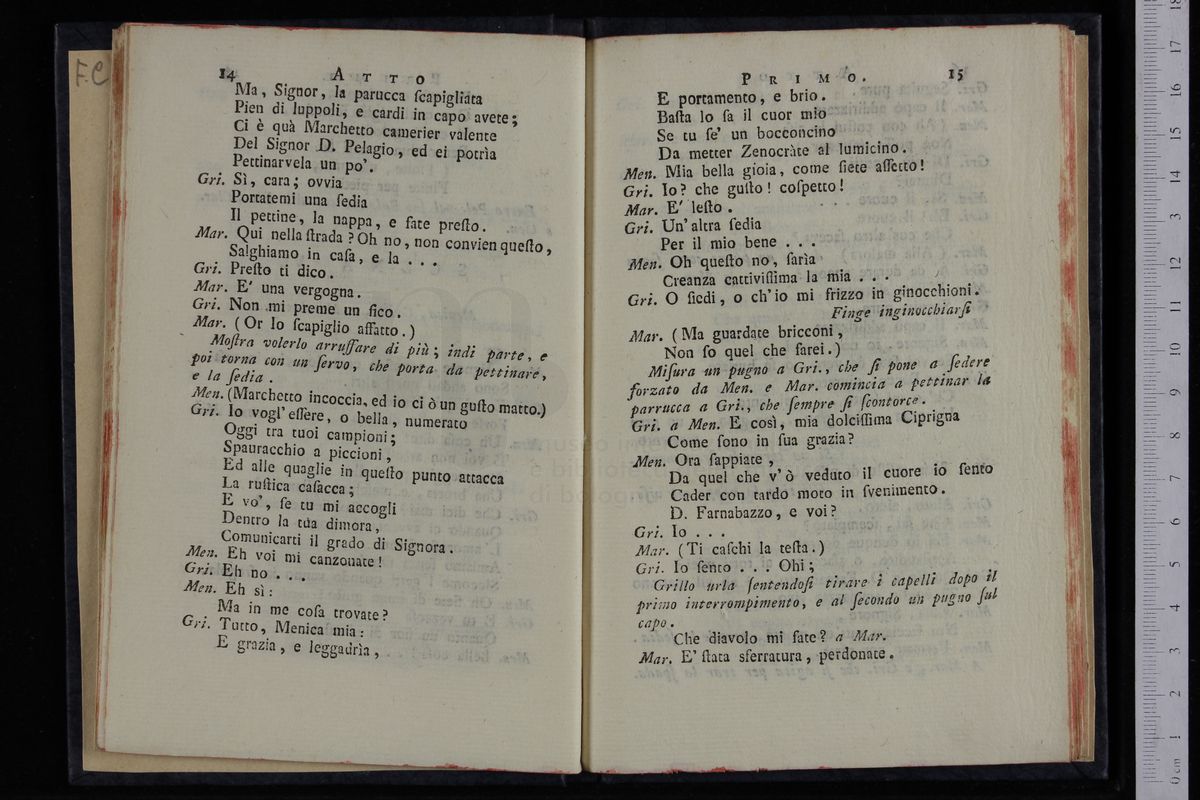 F.C
14 ATTO
Ma, Signor, la parucca ſcapigliata
Pien di luppoli, e cardi in capo avete;
Ci è quà Marchetto camerier valente
Del Signor D. Pelagio, ed ei potrìa
Pettinarvela un po'.
Gri. Sì, cara; ovvia
Portatemi una ſedia
Il pettine, la nappa, e fate preſto.
Mar. Qui nella ſtrada? Oh no, non convien queſto,
Salghiamo in caſa, e la . . .
Gri. Preſto ti dico.
Mar. E' una vergogna.
Gri. Non mi preme un fico.
Mar. (Or lo ſcapiglio affatto.)
Moſtra volerlo arruffare di più; indi parte, e
poi torna con un ſervo, che porta da pettinare,
e la ſedia.
Men. (Marchetto incoccia, ed io ci ò un guſto matto.)
Gri. Io vogl' eſſere, o bella, numerato
Oggi tra tuoi campioni;
Spauracchio a piccioni,
Ed alle quaglie in queſto punto attacca
La ruſtica caſacca;
E vo', ſe tu mi accogli
Dentro la tùa dimora,
Comunicarti il grado di Signora.
Men. Eh voi mi canzonate!
Gri. Eh no . . .
Men. Eh sì:
Ma in me coſa trovate?
Gri. Tutto, Menica mia:
E grazia, e leggadrìa,
PRIMO. 15
E portamento, e brio.
Baſta lo ſa il cuor mio
Se tu ſe' un bocconcino
Da metter Zenocràte al lumicino.
Men. Mia bella gioia, come ſiete aſſetto!
Gri. Io? che guſto! coſpetto!
Mar. E' leſto.
Gri. Un' altra ſedia
Per il mio bene . . .
Men. Oh queſto no, ſarìa
Creanza cattiviſſima la mia . . .
Gri. O ſiedi, o ch' io mi frizzo in ginocchioni.
Finge inginocchiarſi
Mar. (Ma guardate bricconi,
Non ſo quel che farei.)
Miſura un pugno a Gri., che ſi pone a ſedere
forzato da Men. e Mar. comincia a pettinar la
parrucca a Gri., che ſempre ſi ſcontorce.
Gri. a Men. E così, mia dolciſſima Ciprigna
Come ſono in ſua grazia?
Men. Ora ſappiate,
Da quel che v' ò veduto il cuore io ſento
Cader con tardo moto in ſvenimento.
D. Farnabazzo, e voi?
Gri. Io . . .
Mar. (Ti caſchi la teſta.)
Gri. Io ſento . . . Ohi;
Grillo urla ſentendoſi tirare i capelli dopo il
primo interrompimento, e al ſecondo un pugno ſul
capo.
Che diavolo mi fate? a Mar.
Mar. E' ſtata sferratura, perdonate.